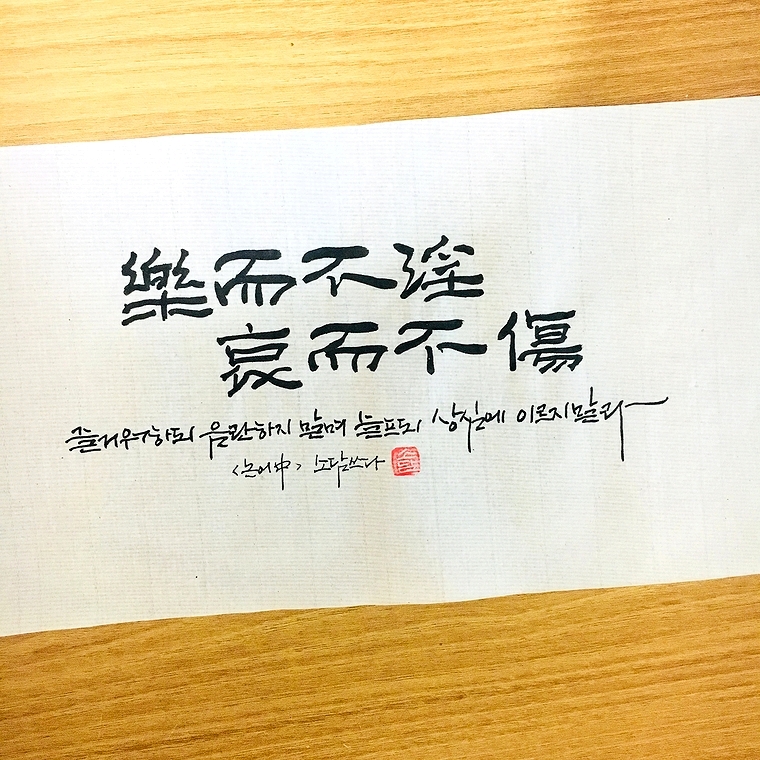 樂而不淫
哀而不傷
즐거워하되 음란하지 말며 슬프되 상심에 이르지말라
<논어中> 소담쓰다